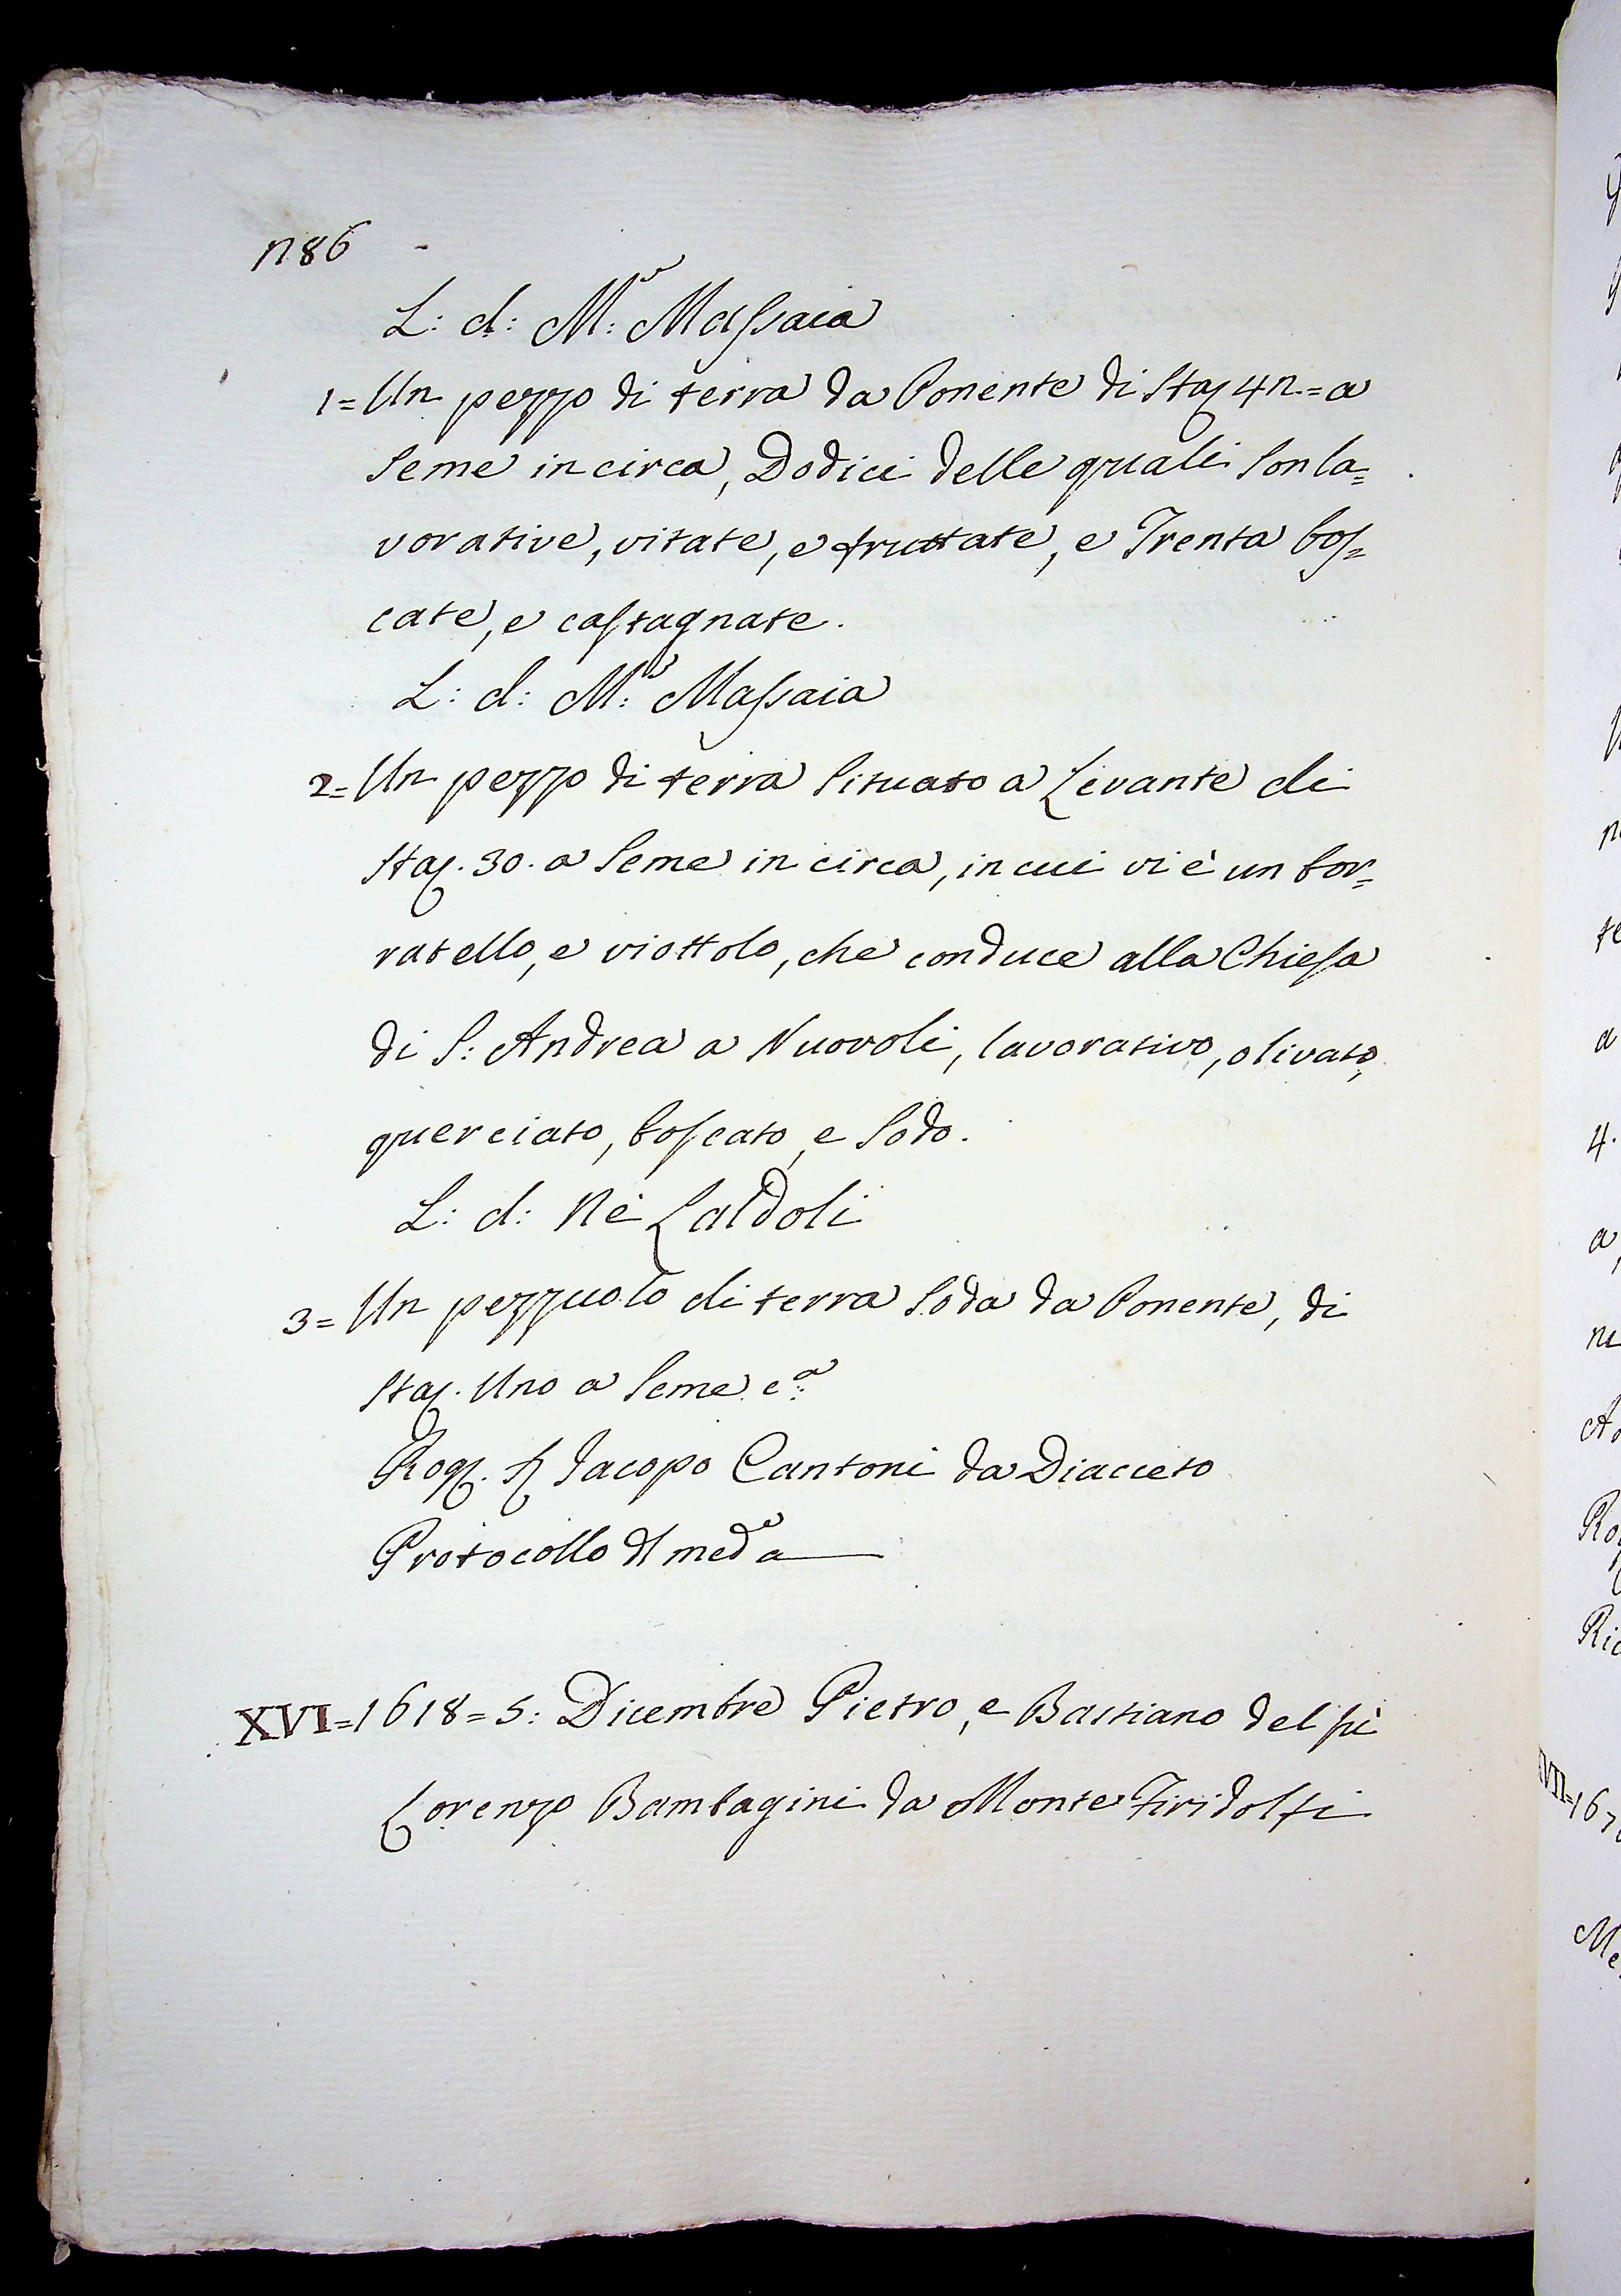 286
L: d: M:e Massaia
1= Un pezzo di terra da Ponente di Staj 42.= a
seme in circa, Dodici delle quali son la=
vorative, vitate, e fruttate, e Trenta bos=
cate, e castagnate.
L: d: M:e Massaia
2= Un pezzo di terra situato a Levante di
Staj. 30. a seme in circa, in cui vi è un bor=
ratello, e viottolo, che conduce alla Chiesa
di S: Andrea a Nuovoli, lavorativo, olivato,
querciato, boscato, e sodo.
L: d: Nè Laldoli
3= Un pezzuolo di terra soda da Ponente, di
Staj. Uno a seme c.a
Rog. Jacopo Cantoni da Diacceto
Protocollo dl med.e a
XVI= 1618= 5: Dicembre Pietro, e Bastiano del fù
Lorenzo Bambagini da Monte Firidolfi